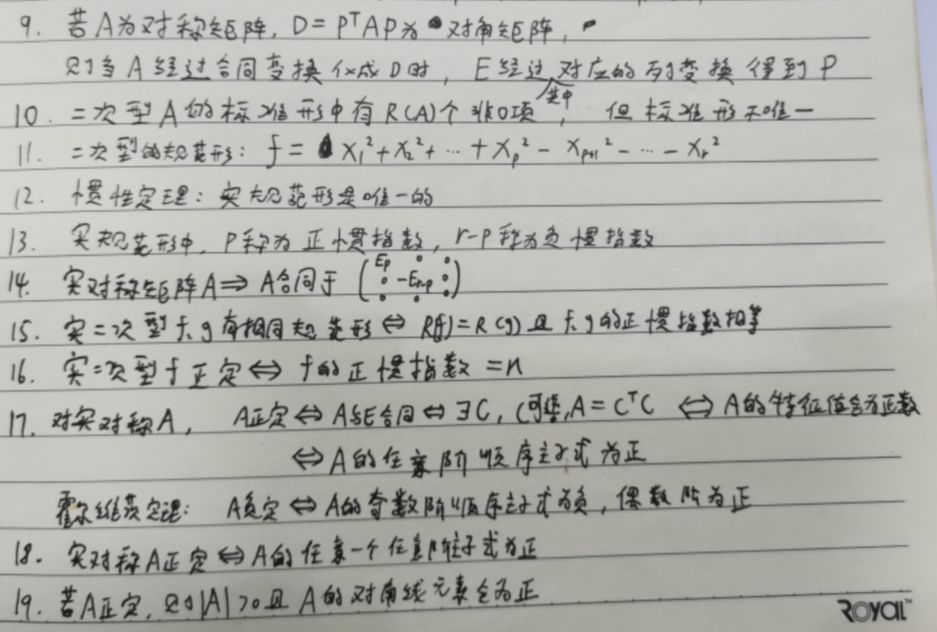 9. 若A为对称矩阵, D=PᵀAP为对角矩阵,
则当A经过合同变换化成D时, E经过对应的列变换得到P
10. 二次型A的标准形中有R(A)个非0项, 但标准形不唯一
11. 二次型的规范形: f= x₁²+x₂²+…+xₚ²-xₚ₊₁²-…-xᵣ²
12. 惯性定理: 实规范形是唯一的
13. 实规范形中, P称为正惯指数, r-p称为负惯指数
14. 实对称矩阵A⇒A合同于 (Eₚ 0 0 0 -Eᵣ₋ₚ 0 0 0 0)
15. 实二次型f、g有相同规范形⇔R(f)=R(g)且f、g的正惯指数相等
16. 实二次型f正定⇔f的正惯指数=n
17. 对实对称A, A正定⇔A与E合同⇔∃C, (可逆),A=CᵀC ⇔A的特征值全为正数
⇔A的任意阶顺序主子式为正
霍尔维茨定理: A负定⇔A的奇数阶顺序主子式为负, 偶数阶为正
18. 实对称A正定⇔A的任意一个任意阶主子式为正
19. 若A正定, 则|A|>0且A的对角线元素全为正
ROYAL